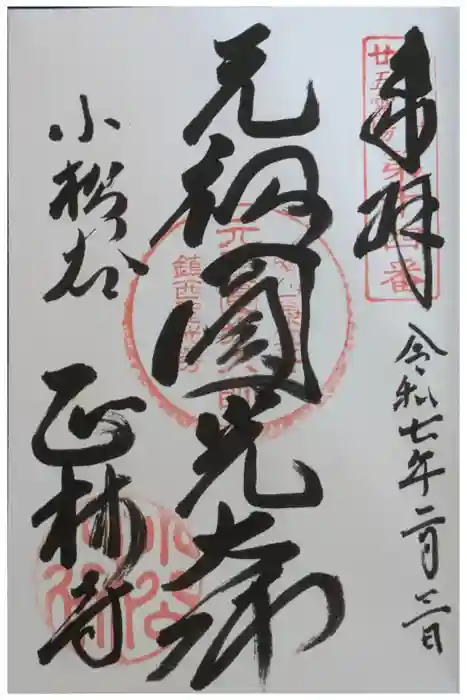 奉拝
廿五霊場第十四番
令和七年二月三日
元祖圓光大師
小松谷
正林寺